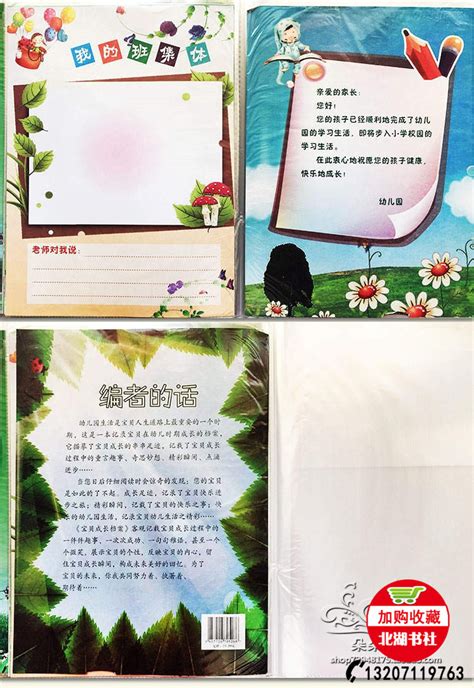 我的班集体
老师对我说：
亲爱的家长：
您好！
您的孩子已经顺利地完成了幼儿
园的学习生活，即将步入小学校园的
学习生活。
在此衷心地祝愿您的孩子健康、
快乐地成长！
幼儿园
编者的话
幼儿园生活是宝贝人生道路上最重要的一个时
期，这是一本记录宝贝在幼儿时期成长的档案，
它描摹了宝贝成长的串串足迹，记载了宝贝成长
过程中的童言趣事、奇思妙想、精彩瞬间、点滴
进步……
当您日后仔细阅读时会惊奇的发现：您的宝贝
是如此的了不起。成长足迹，记录了宝贝快乐进
步之旅；精彩瞬间，记载了宝贝的快乐之事；快
乐的幼儿园生活，记录宝贝幼儿生活之精彩……
《宝贝成长档案》客观记载宝贝成长过程中的
一件件趣事、一次次成功、一句句稚语，甚至一个
个微笑，展示宝贝的个性，反映宝贝的内心，留
住宝贝成长瞬间，构成未来美好的回忆。为了
宝贝的未来，你我共同努力着、执著着、
期待着……
加购收藏
北湖书社
13207119763